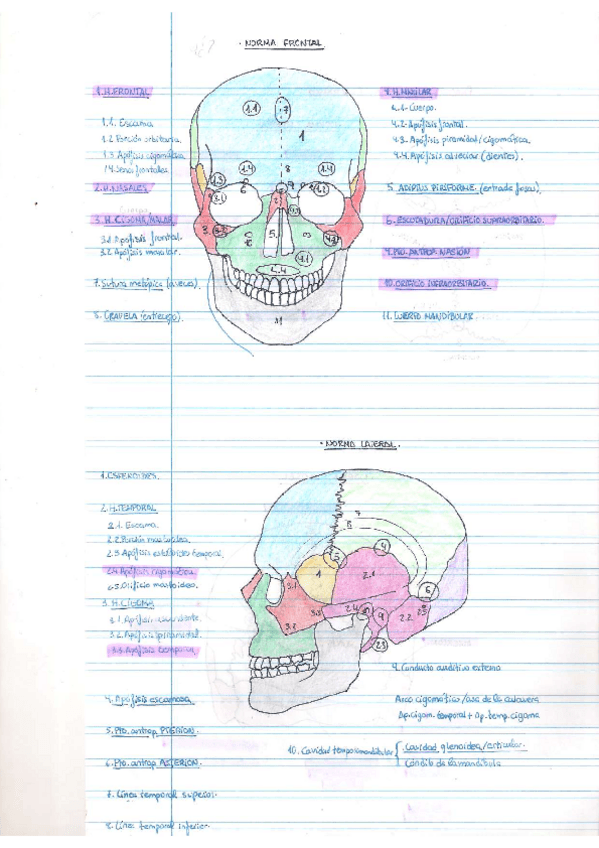 · NORMA FRONTAL
1. H. FRONTAL
1.1. Escama
1.2 Porción orbitaria.
1.3 Apófisis cigomática
1.4 Senos frontales
2. H. NASALES
3. H. CIGOMA/MALAR
3.1 Apófisis frontal.
3.2 Apófisis maxilar.
7. Sutura metópica
8. GRAVELA (entrecejo).
4. H. MAXILAR
4.1- Cuerpo.
4.2- Apófisis frontal.
4.3- Apófisis piramidal/cigomática.
4.4- Apófisis alveolar (dientes).
5. APERTUS PIRIFORME. (entrada fosas).
6. ESCOTADURA/ORIFICIO SUPRAORBITARIO.
9. PTO. ANTROP. NASION
10. ORIFICIO INFRAORBITARIO.
11. CUERPO MANDIBULAR
· NORMA LATERAL.
1. ESFENOIDES.
2. H. TEMPORAL
2.1. Escama.
2.2 Porción mastoidea.
2.3 Apófisis estiloides temporal.
2.4 Apófisis cigomática
2.5 Orificio mastoideo.
3. H. CIGOMA
3.1. Apófisis
3.2. Apófisis piramidal.
3.3. Apófisis temporal
4. Apófisis escamosa
5. Pto. antrop. PTERION.
6. Pto. antrop. ASTERION.
7. Línea temporal superior.
8. Línea temporal inferior.
9. Conducto auditivo externo
Arco cigomático/asa de la calavera
Ap. cigom. temporal + Ap. temp. cigoma
10. Cavidad temporomandibular
Cavidad glenoidea/articular.
Cóndilo de la mandíbula